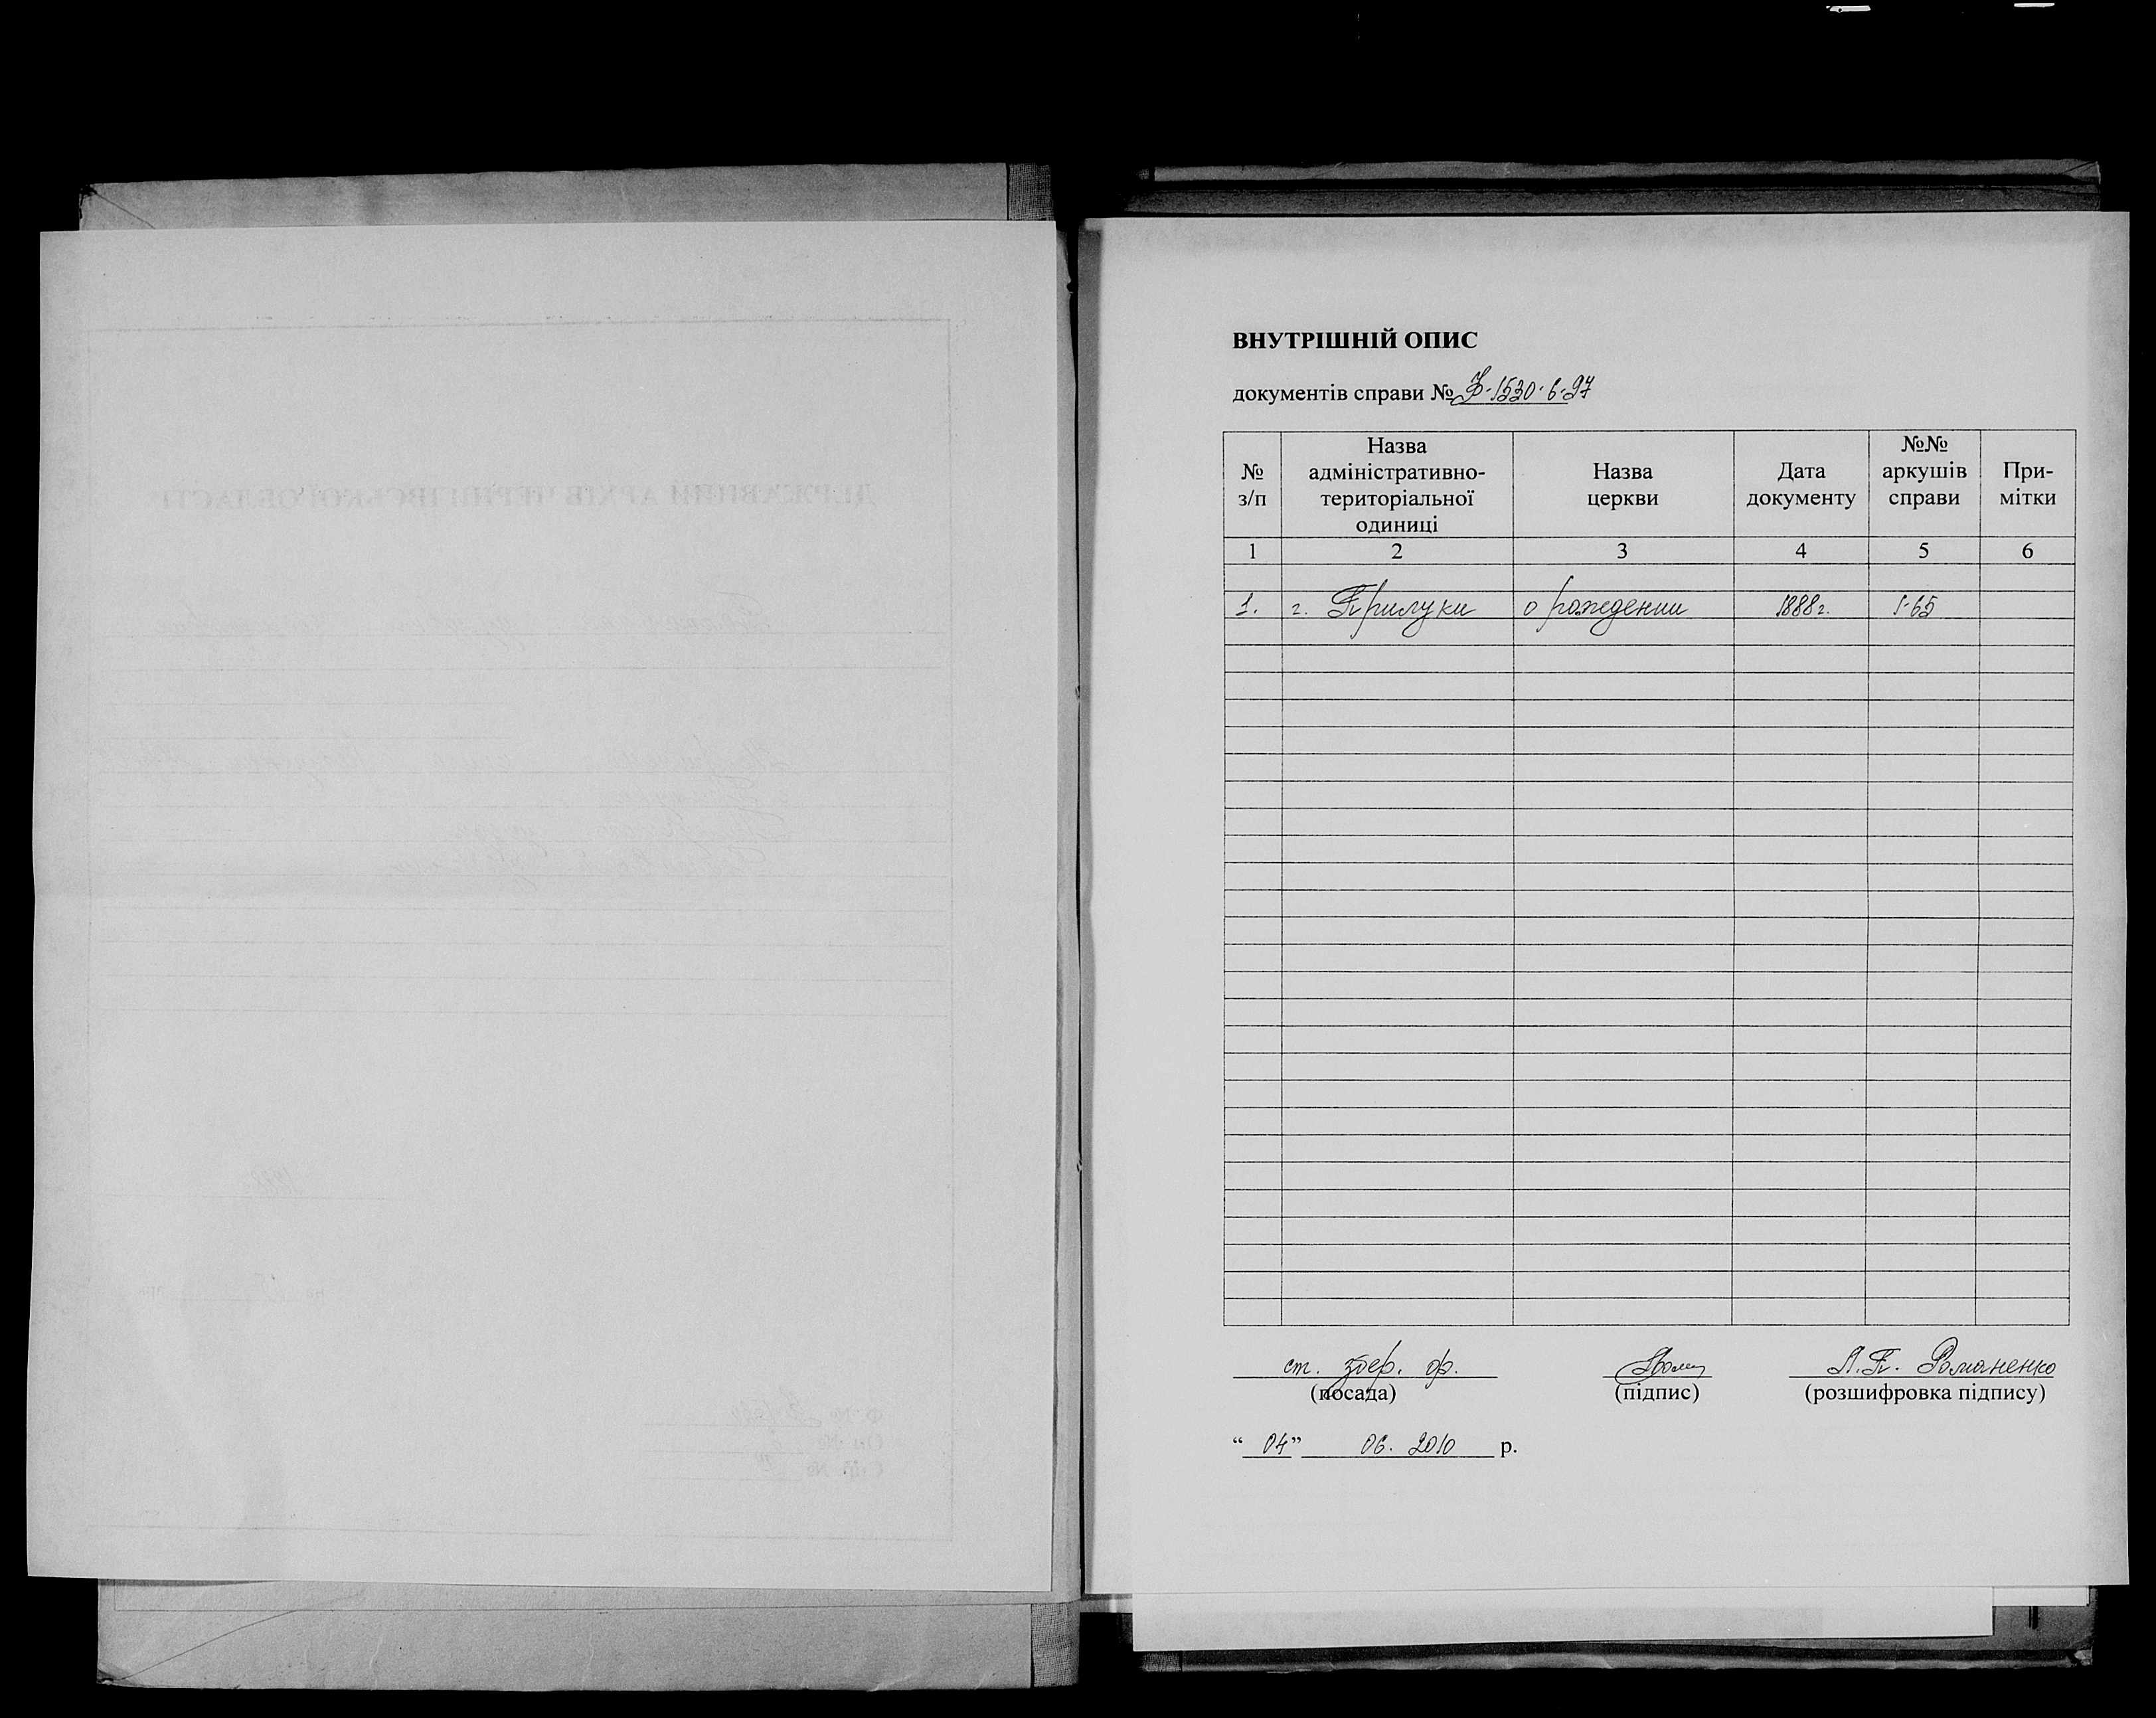 ВНУТРІШНІЙ ОПИС
документів справи № Ф-1530-6-97
№ з/п
Назва адміністративно-територіальної одиниці
Назва церкви
Дата документу
№№ аркушів справи
При-мітки
1 2 3 4 5 6
1. г. Прилуки о рождении 1888г. 1-65
ст. збер. ф.
Л.П. Романенко
(посада) (підпис) (розшифровка підпису)
“ 04 ” 06. 2010 р.
ДЕРЖАВНИЙ АРХІВ ЧЕРНІГІВСЬКОЇ ОБЛАСТІ